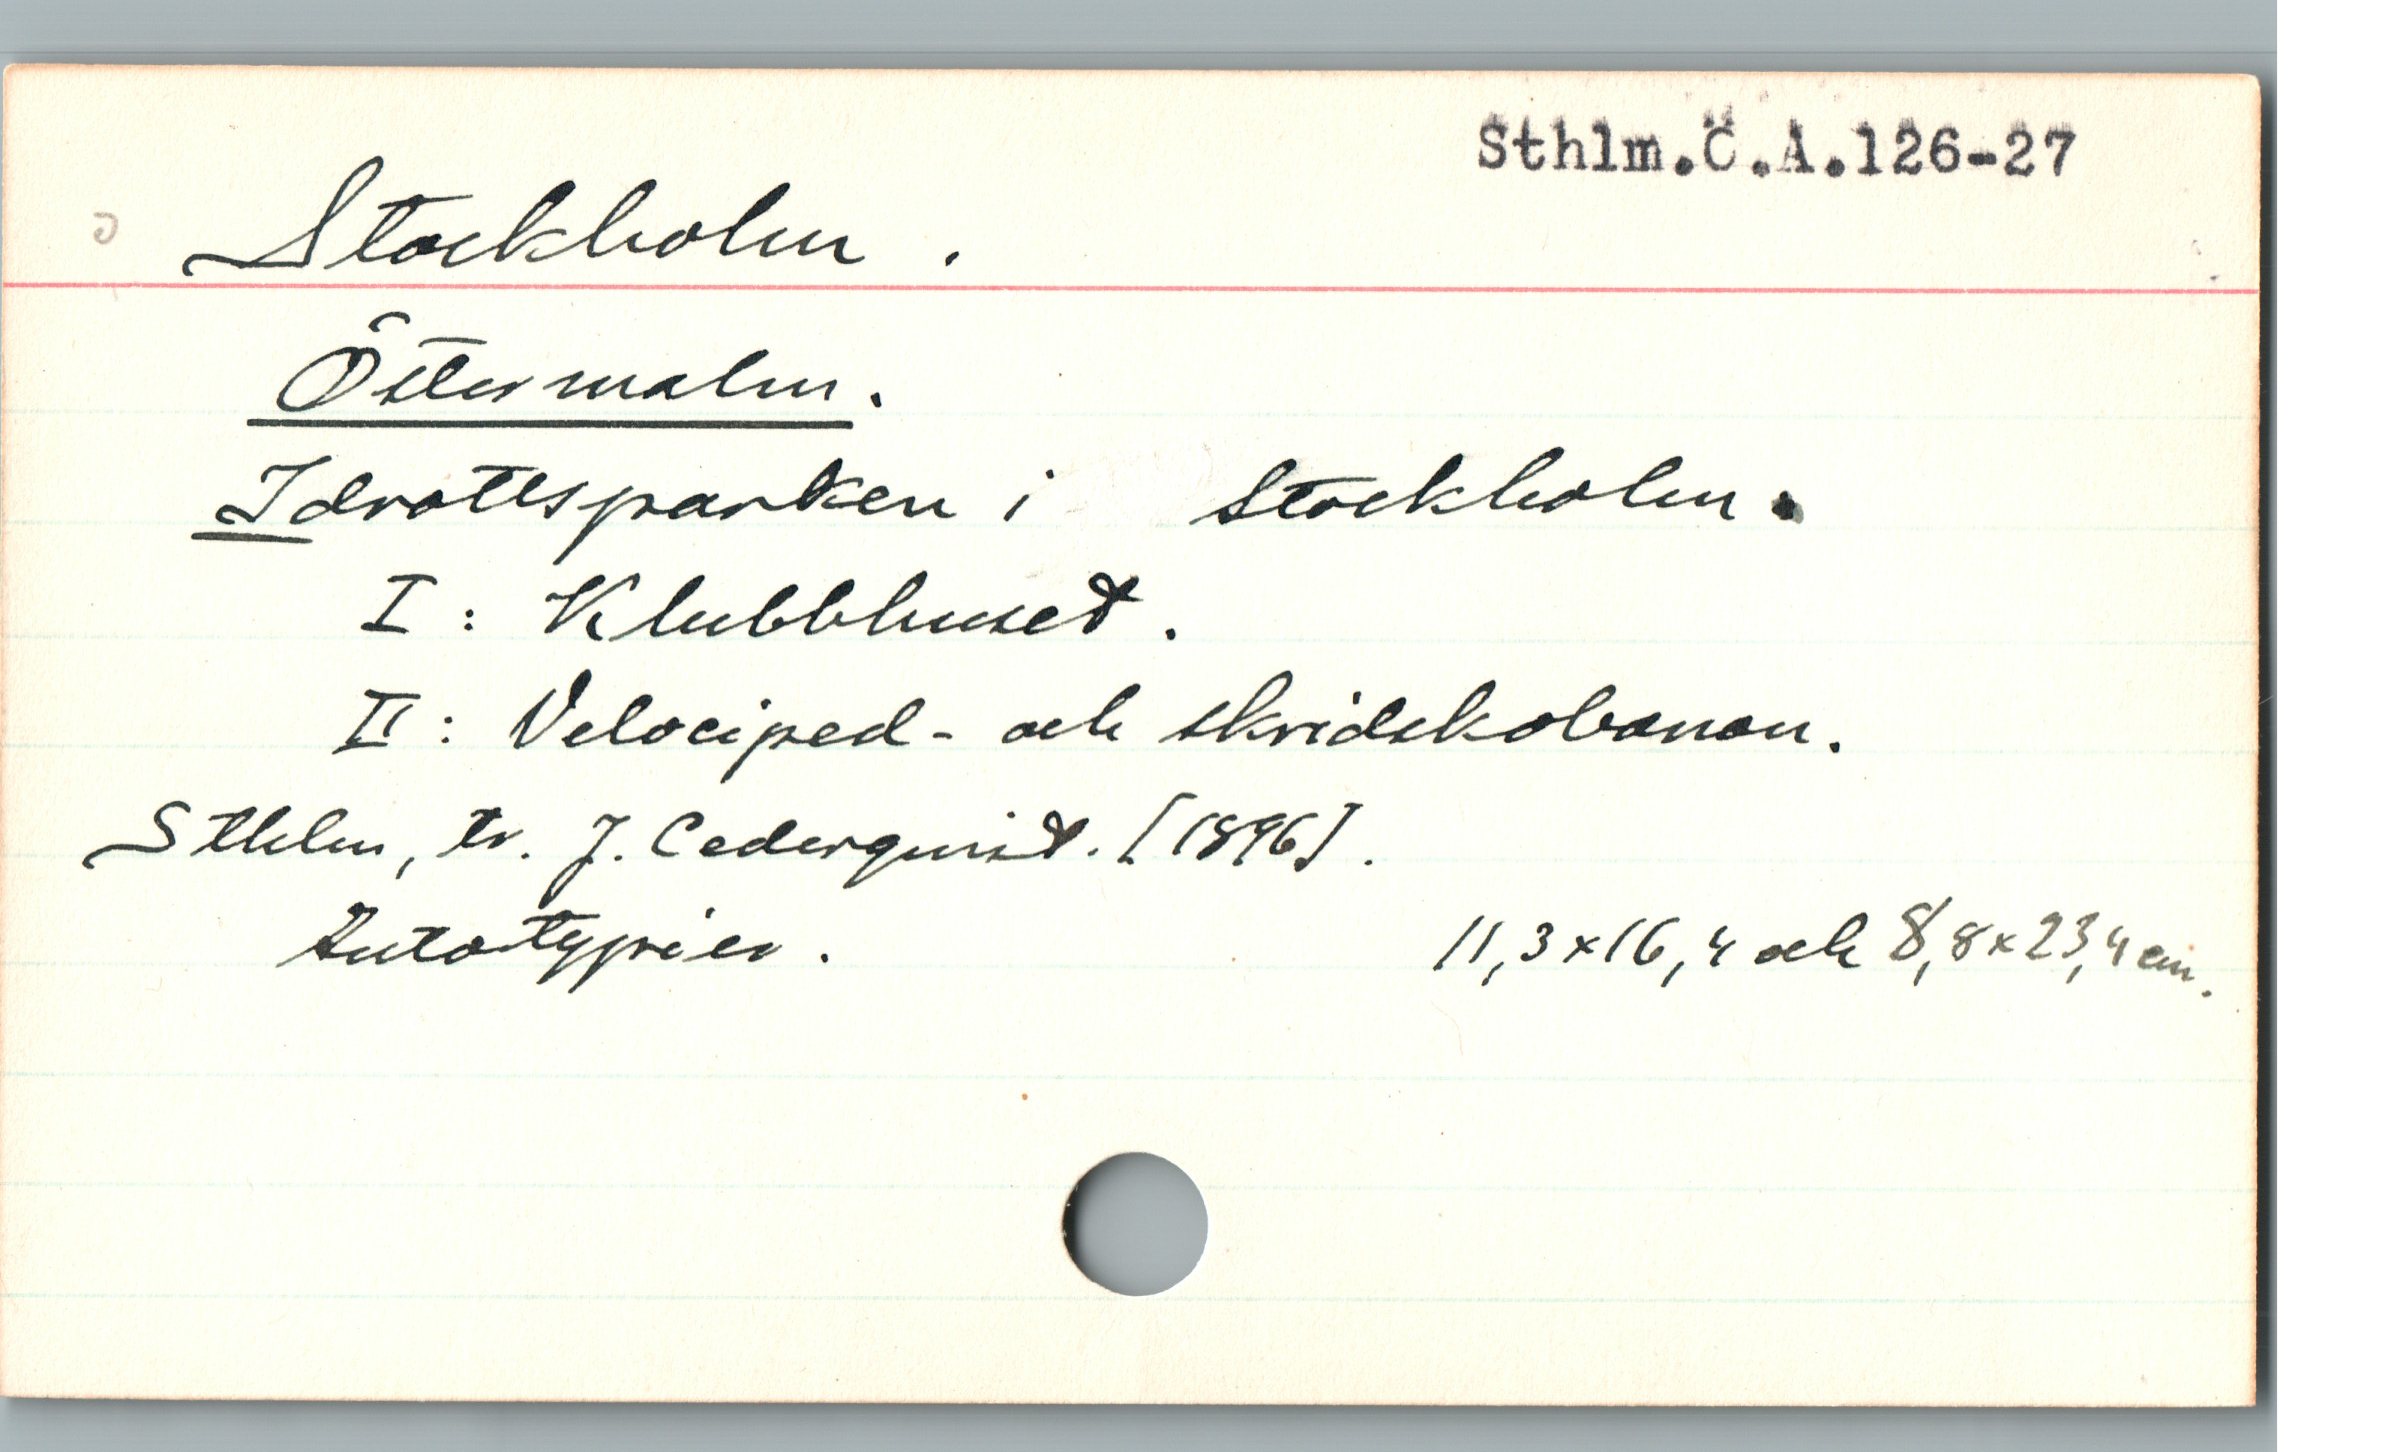 Sthlm.Ö.A.126-27
Stockholm.
Östermalm.
Idrottsparken i Stockholm.
I: Klubbhuset.
II: Velociped- och skridskobanan.
Sthlm, tr. J. Cederquist. [1896].
Autotypier. 11,3x16,4 och 8,8x23,4 cm.